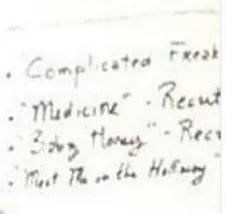 · Complicated Freak
· "Medicine" - Recut
· "Baby" - Rec
· "Meet Me in the Hallway"